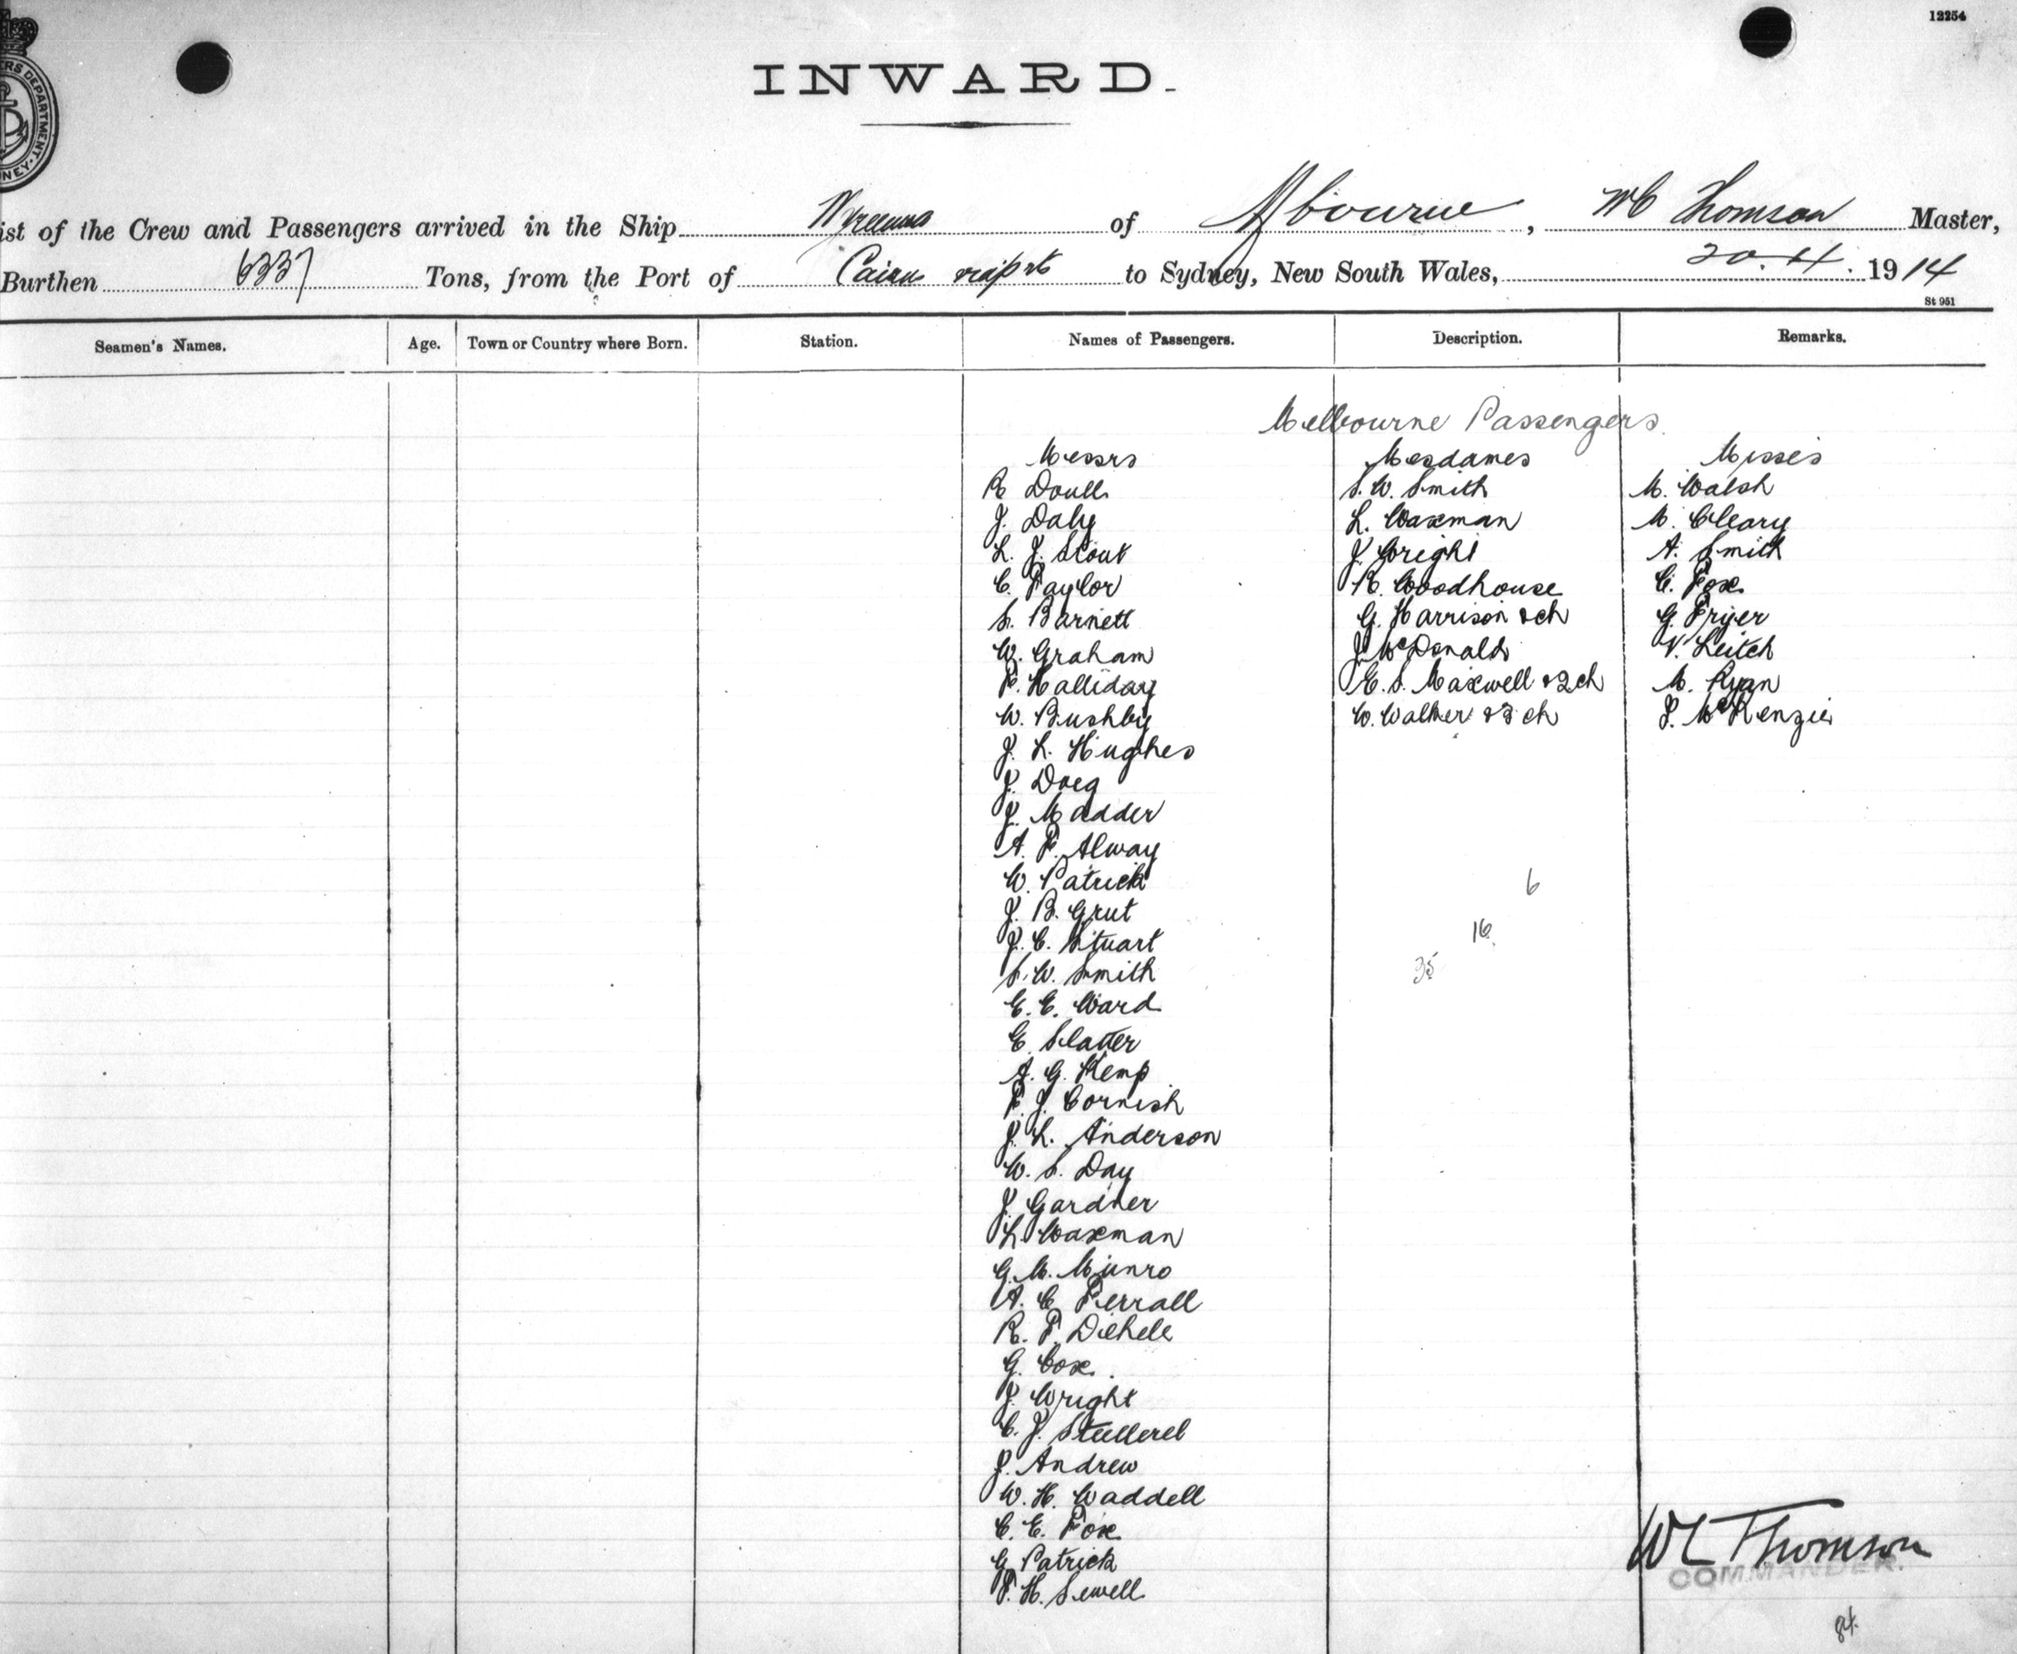 12254
INWARD.
ist of the Crew and Passengers arrived in the Ship Wyreema of Mbourne, WC Thomson Master,
Burthen 6337 Tons, from the Port of Cairns to Sydney, New South Wales, 20.4.1914
St 951
Seamen's Names. Age. Town or Country where Born. Station. Names of Passengers. Description. Remarks.
Melbourne Passengers
Messrs Mesdames Misses
R Doull S. W. Smith M. Walsh
J. Daly L. Waxman M. Cleary
L. J. Stout J. Wright A. Smith
C. Taylor R. Woodhouse C. Fox
S. Barnett G. Harrison & ch G. Fryer
W. Graham J. McDonald V. Leitch
F. Halliday E. S. Maxwell & 2 ch M. Ryan
W. Bushby W. Walker & 3 ch J. McKenzie
J. L. Hughes
J. Doeg
J. Madder
A. F. Alway
W. Patrick
6
J. B. Grut
J. C. Stuart
16
S. W. Smith
35
E. E. Ward
E. Slatter
A. G. Kemp
F. J. Cornish
J. L. Anderson
W. S. Day
J. Gardner
L. Waxman
G. M. Munro
A. C. Ferrall
R. F. Diehele
G. Cox
J. Wright
C. J.
J. Andrew
W. H. Waddell
C. E. Fox
WC Thomson
COMMANDER.
G Patrick
F. H. Sewell